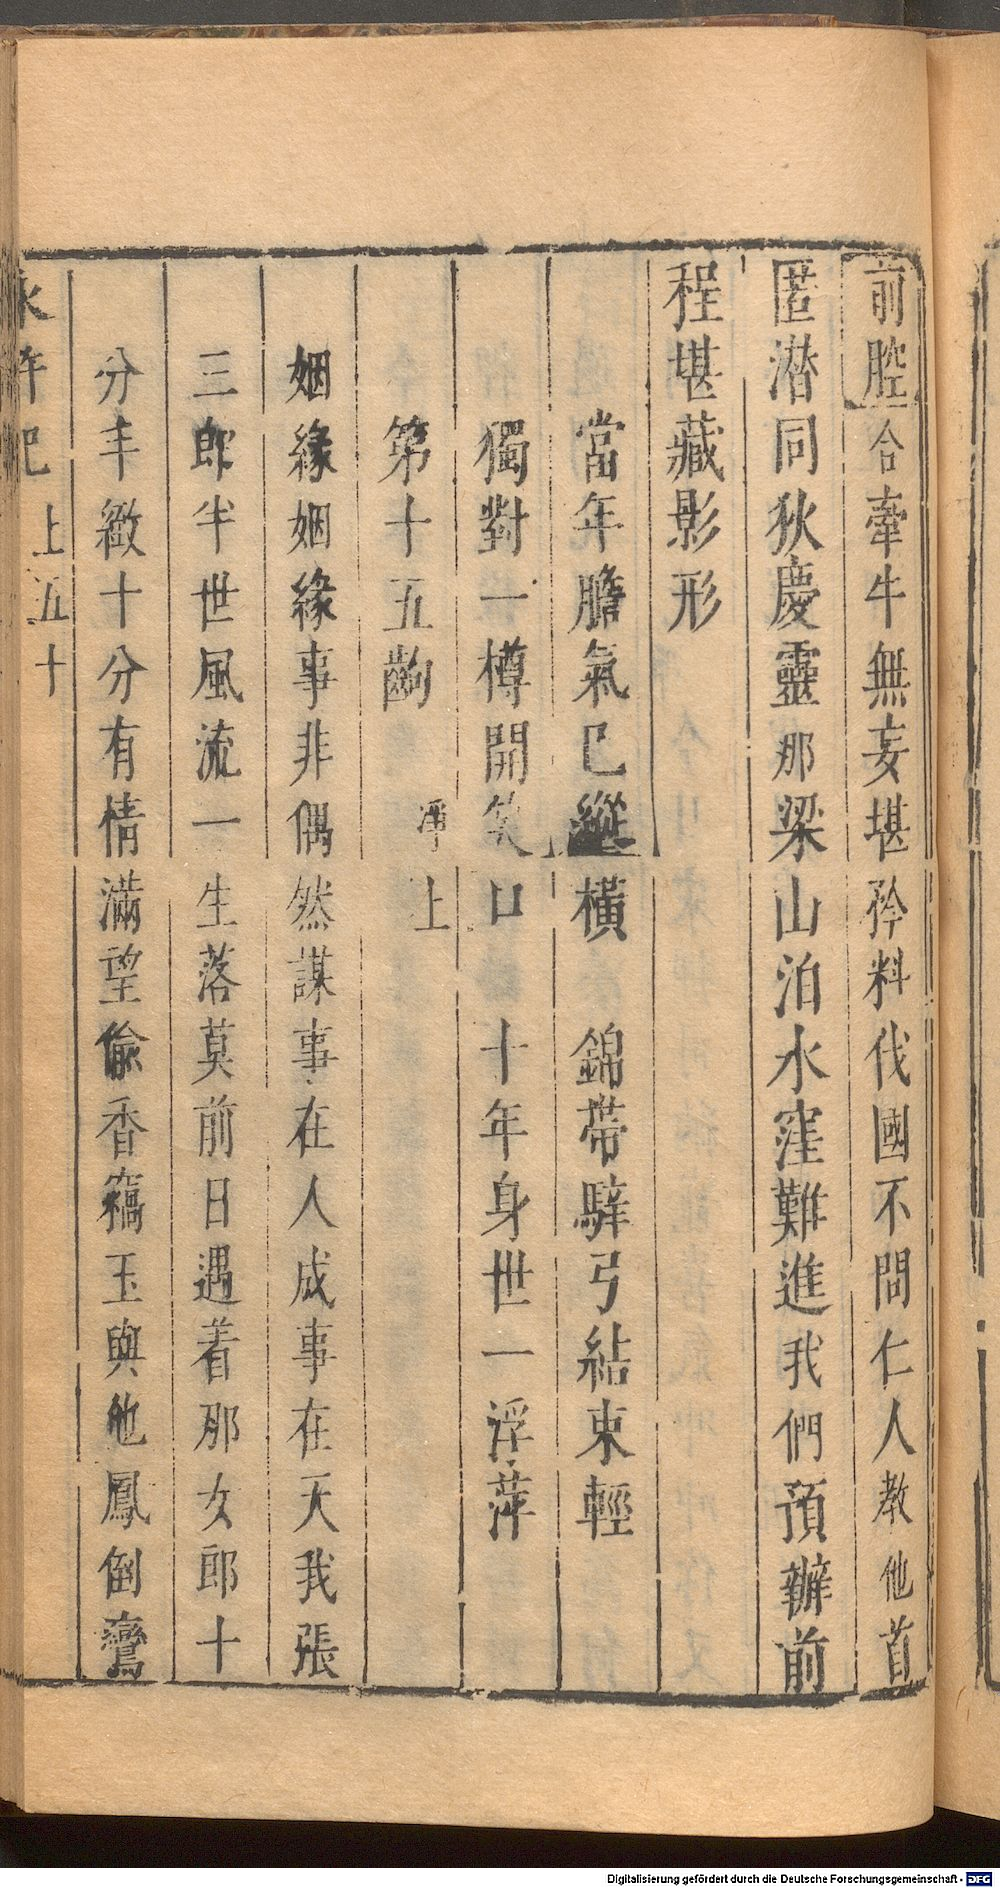 前腔合牽牛無妄堪矜料伐國不問仁人教他首
匿潛同狄慶靈那梁山泊水窪難進我們預辦前
程堪藏影形
當年膽氣已縱橫　錦帶騂弓結束輕
獨對一樽開笑口　十年身世一浮萍
第十五齣
淨上
姻緣姻緣事非偶然謀事在人成事在天我張
三郎半世風流一生落莫前日遇着那女郎十
分丰緻十分有情滿望偸香竊玉與他鳳倒鸞
水滸記　上五十
Digitalisierung gefördert durch die Deutsche Forschungsgemeinschaft - DFG